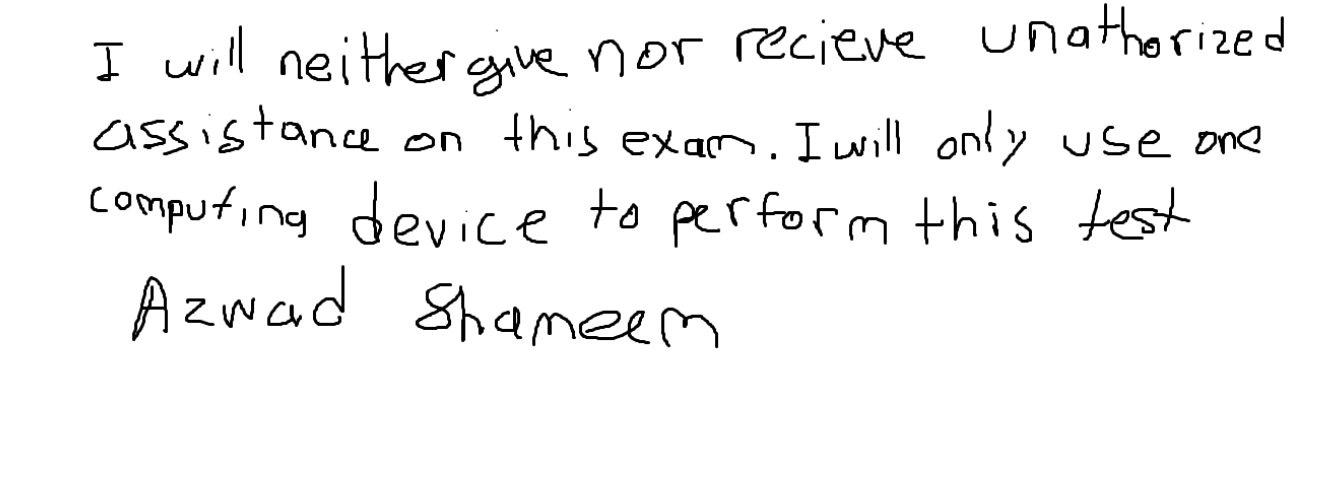 I will neither give nor recieve unathorized
assistance on this exam. I will only use one
computing device to perform this test
Azwad Shameem